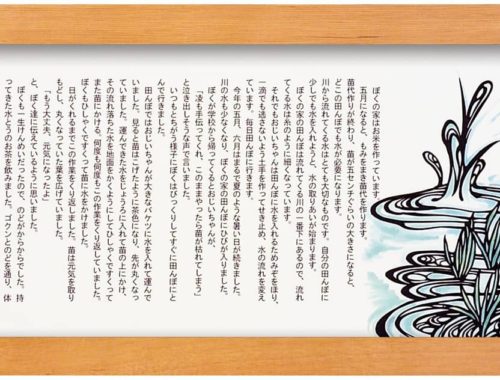 ぼくの家はお米を作っています。
五月になると、もみをまき苗代を作ります。
苗代作りが終わり、苗が五センチぐらいの大きさになると、
どこの田んぼでも水が必要になります。
川から流れてくる水はとても大切なものです。自分の田んぼに
少しでも水を入れようと、水の取りあいが始まります。
ぼくの家の田んぼは流れてくる川の一番下にあるので、流れ
てくる水は糸のように細くなっています。
それでもおじいちゃんは田んぼに水を入れるためみぞをほり、
一滴でも逃さないよう土手を作ってせき止め、水の流れを変え
ています。毎日田んぼに行きます。
今年の五月、六月はまるで夏のような暑い日が続きました。
川の水も少なくなり、ぼくの家の田んぼにひびが入りました。
ぼくが学校から帰ってくるとおじいちゃんが、
「凌も手伝ってくれ、このままやったら苗が枯れてしまう」
と泣き出しそうな声で言いました。
いつもとちがう様子にぼくはびっくりしてすぐに田んぼにと
んで行きました。
田んぼではおじいちゃんが大きなバケツに水を入れて運んで
いました。見ると苗はこげたように茶色になり、先が丸くなっ
ていました。運んできた水をじょうろに入れて苗の上にかけ、
その流れ落ちた水を地面をかくようにしてひしゃくですくって
また苗にかける。何度も何度もこの作業をくり返していました。
ぼくもひしゃくですくって苗に水をかけました。
日がくれるまでこの作業をくり返しました。苗は元気を取り
もどし、丸くなっていた葉を広げていました。
「もう大丈夫、元気になったよ」
と、ぼく達に伝えているように思いました。
ぼくも一生けんめいだったので、のどがからからでした。持
ってきた水とうのお茶を飲みました。ゴクンとのどを通り、体